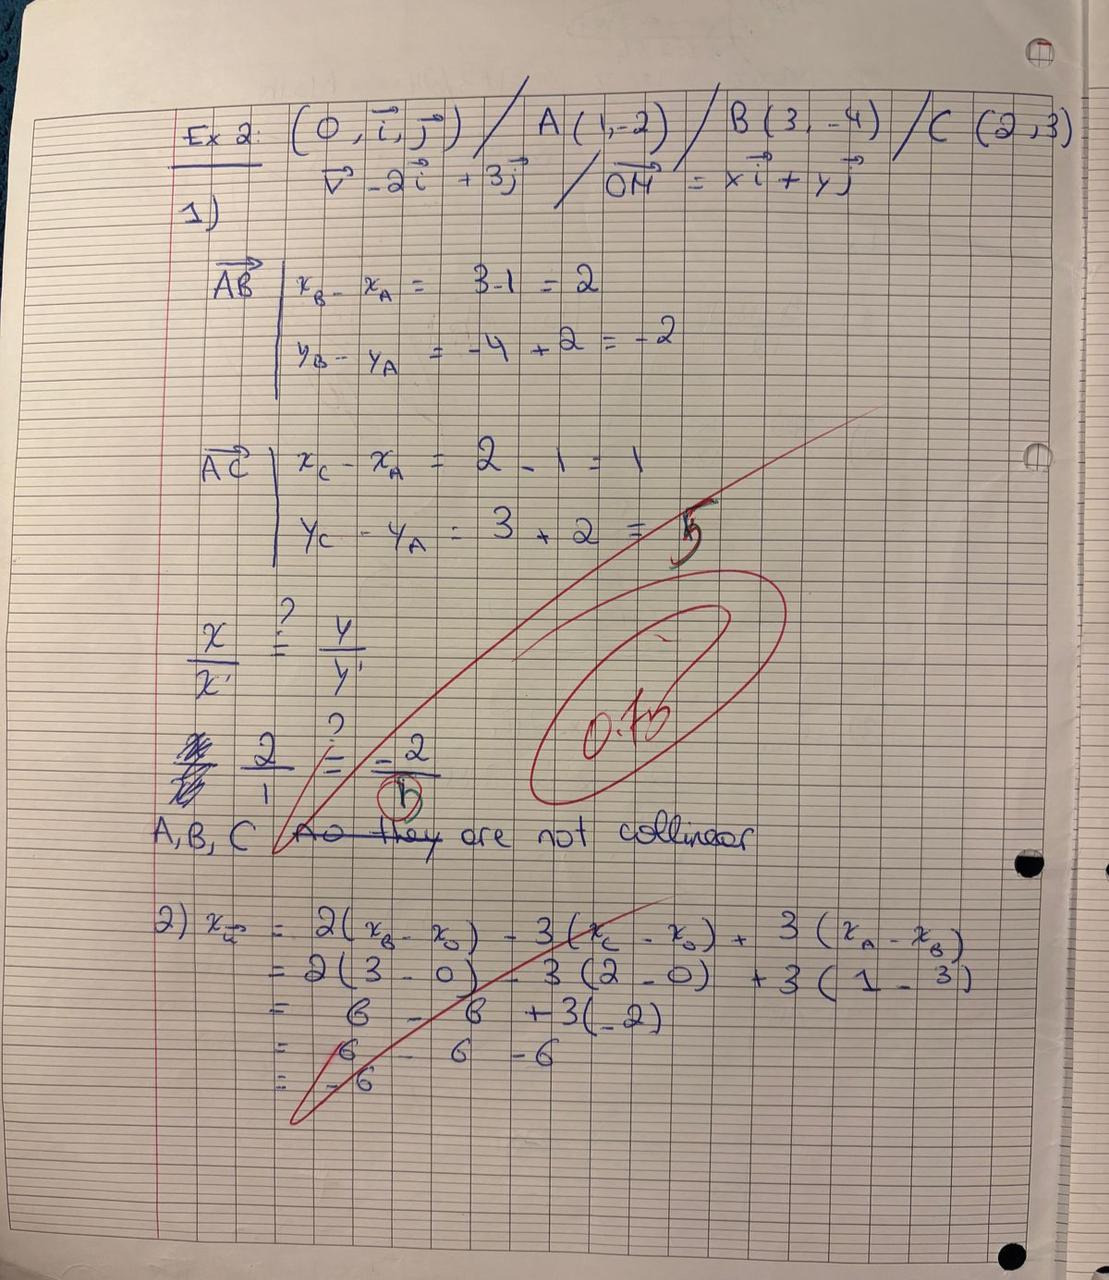 Ex 2: (O, i⃗, j⃗) / A(1,-2) / B(3,-4) / C(2,3)
V⃗ -2i⃗ + 3j⃗ / OM⃗ = xi⃗ + yj⃗
1)
AB⃗ | x_B - x_A = 3-1 = 2
y_B - y_A = -4 + 2 = -2
AC⃗ | x_C - x_A = 2 - 1 = 1
y_C - y_A = 3 + 2 = 5
x/x' =? y/y'
2/1 =? -2/5
0.75
A,B,C Ao they are not collinear
2) x_u⃗ = 2(x_B - x_O) - 3(x_C - x_O) + 3(x_A - x_B)
= 2(3 - 0) - 3(2 - 0) + 3(1 - 3)
= 6 - 6 + 3(-2)
= 6 - 6 - 6
= -6